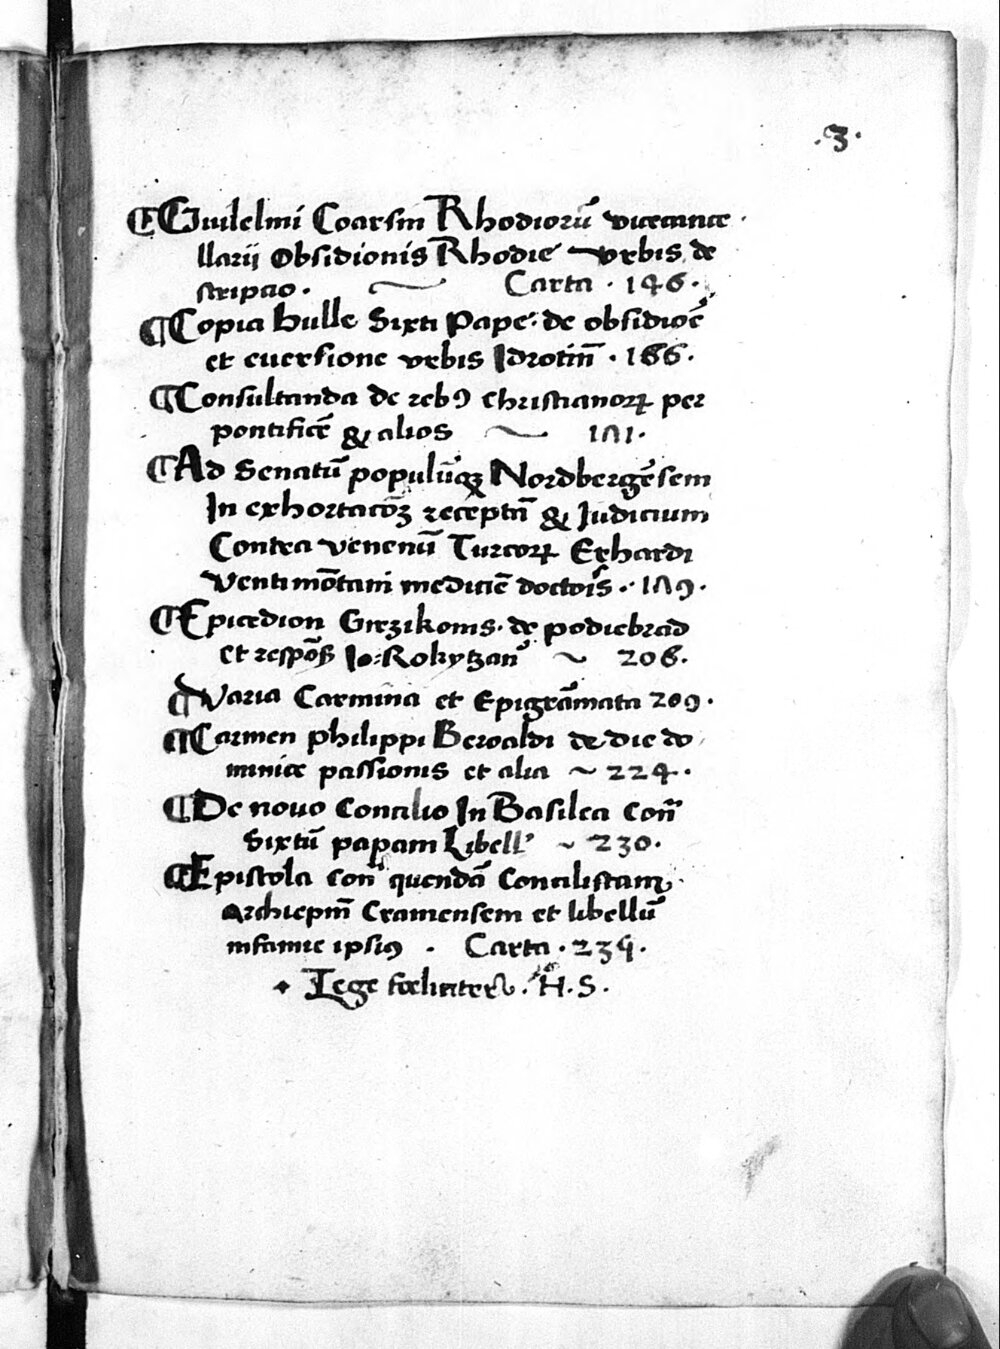 .3.
¶ Guilelmi Coarsin Rhodiorū vicecance
llarij Obsidionis Rhodie vrbis de
scripcio . Carta . 146 .
¶ Copia bulle Sixti Pape . de obsidiōe
et euersione vrbis Idrotin̄ . 166 .
¶ Consultanda de rebꝰ christianoꝝ per
pontificē & alios 181 .
¶ Ad Senatū populūqꝫ Nordbergēsem
In exhortacōꝫ receptā & Iudicium
Contra venenū Turcoꝝ Erhardi
Ventimōtani medicīe doctoris . 189 .
¶ Epicedion Girzikonis . de podiebrad
et respōs Io: Rokytzan̄ ~ 206 .
¶ Varia Carmina et Epigrāmata 209 .
¶ Carmen Philippi Beroaldi de die do
minice passionis et alia ~ 224 .
¶ De nouo Concilio In Basilea con̄
Sixtū papam Libell' ~ 230 .
¶ Epistola con̄ quendā Concilistam
Archiepm̄ Cramensem et libellū
infamie ipsiꝰ . Carta . 234 .
Lege foeliciter . H . S .